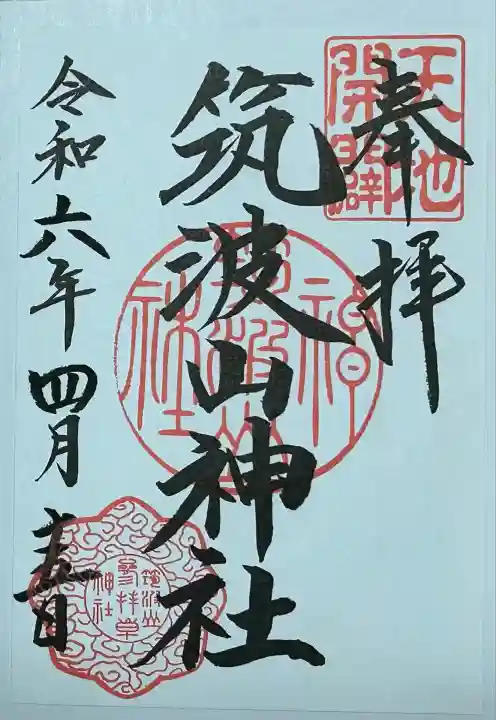 奉拝
天地
開闢
筑波山神社
筑波山
神社
令和六年四月吉日
筑波山
参拝章
神社